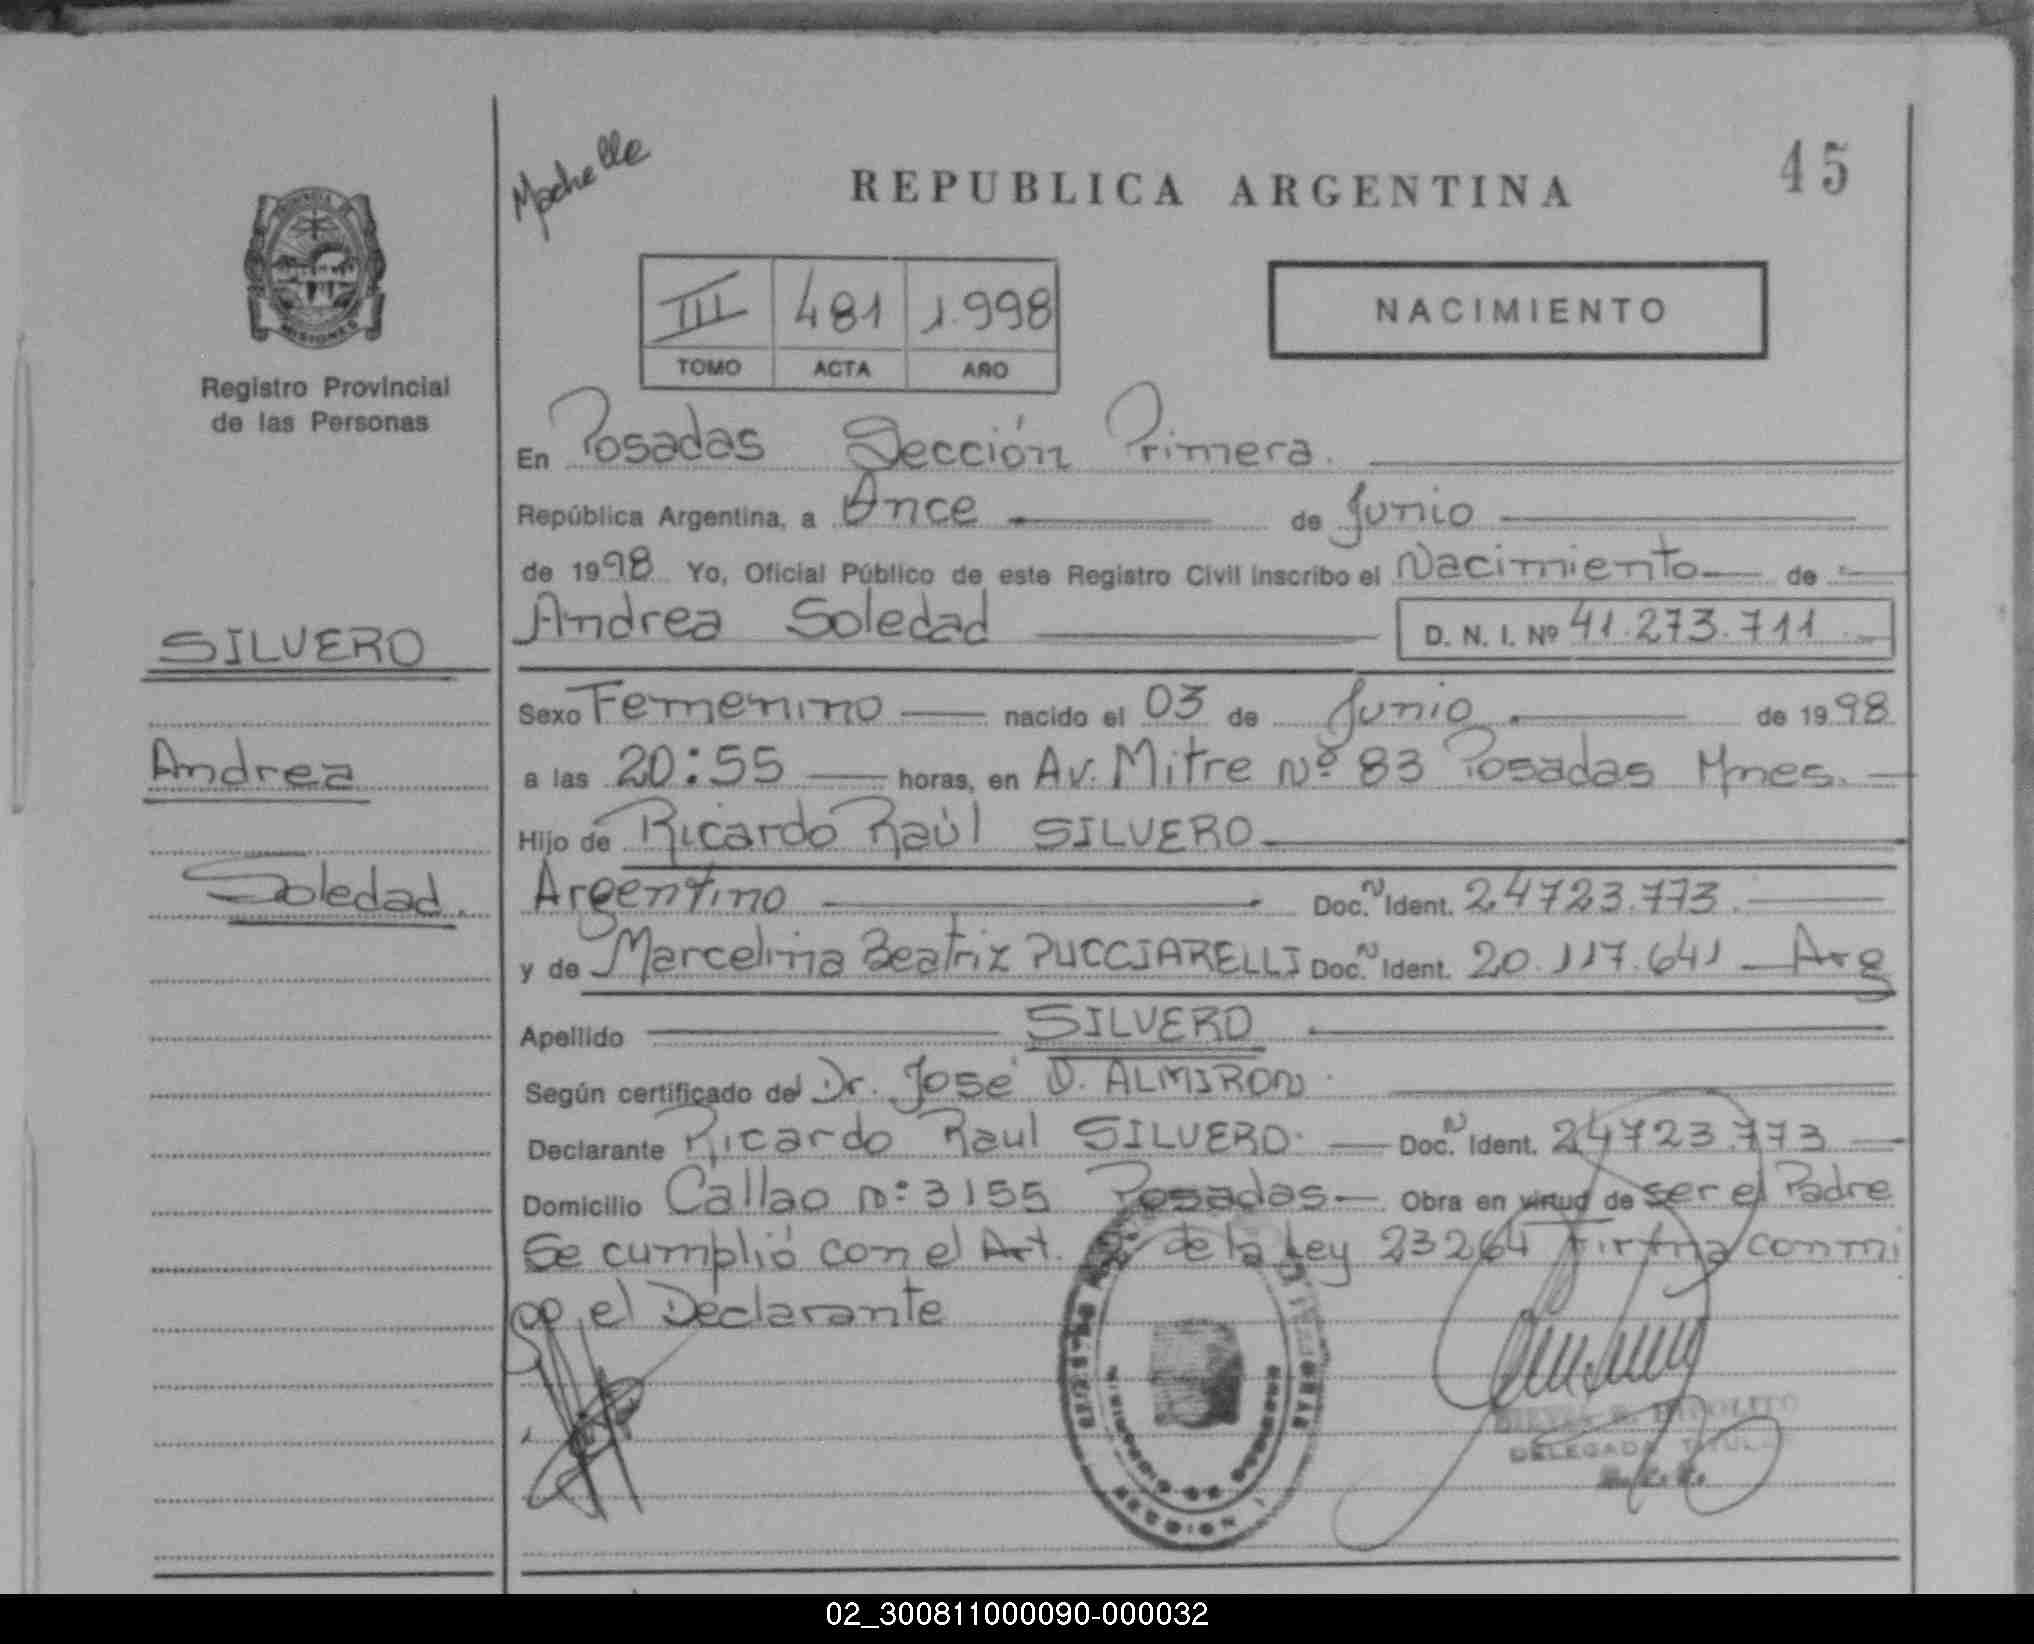 Mochelle
REPUBLICA ARGENTINA
45
III 481 1.998
TOMO ACTA AÑO
NACIMIENTO
MISIONES
Registro Provincial
de las Personas
En Posadas Sección Primera.
República Argentina, a Once de Junio
de 1998 Yo, Oficial Público de este Registro Civil inscribo el Nacimiento de
SILVERO
Andrea Soledad D. N. I. Nº 41.273.711
Sexo Femenino nacido el 03 de Junio de 1998
Andrea
a las 20:55 horas, en Av. Mitre Nº 83 Posadas Mnes.
Hijo de Ricardo Raúl SILVERO
Soledad.
Argentino Doc. N Ident. 24723.773.
y de Marcelina Beatriz PUCCIARELLI Doc. N Ident. 20.117.641 Arg
Apellido SILVERO
Según certificado del Dr. José O. ALMIRON.
Declarante Ricardo Raul SILVERO. Doc. N Ident. 24723.773
Domicilio Callao Nº 3155 Posadas Obra en virtud de ser el Padre
Se cumplió con el Art. de la Ley 23264 Firma conmi
go el Declarante
DELEGADA TITULAR
SECCION 1
02_300811000090-000032